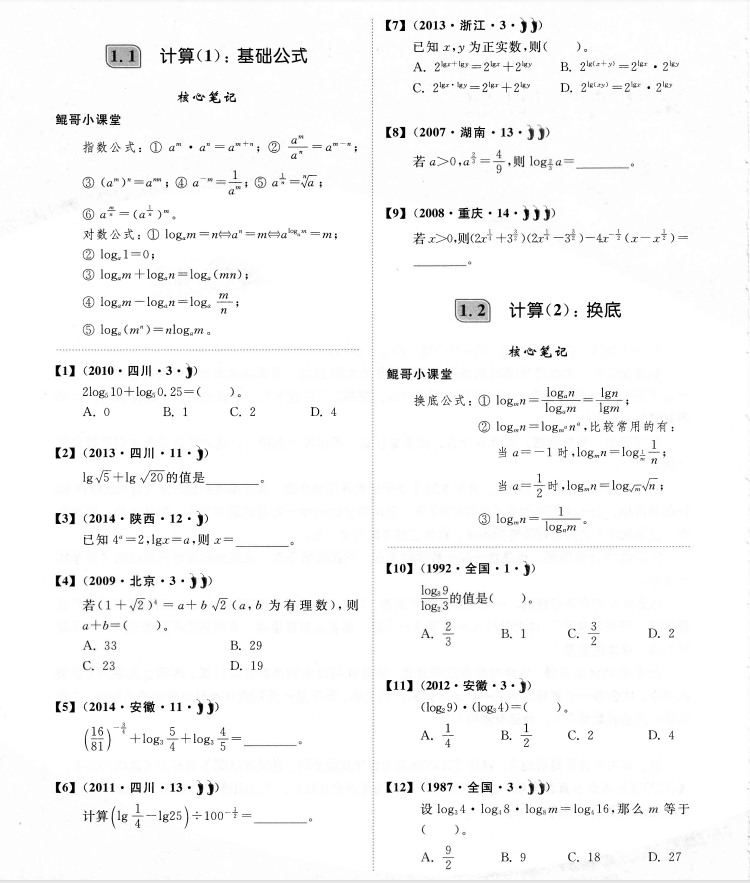 1.1 计算(1)：基础公式
核心笔记
鲲哥小课堂
指数公式：① aᵐ·aⁿ=aᵐ⁺ⁿ；② aᵐ/aⁿ=aᵐ⁻ⁿ；
③ (aᵐ)ⁿ=aᵐⁿ；④ a⁻ᵐ=1/aᵐ；⑤ a^(1/n)=ⁿ√a；
⑥ a^(m/n)=(a^(1/n))ᵐ。
对数公式：① logₐm=n⇔aⁿ=m⇔a^(logₐm)=m；
② logₐ1=0；
③ logₐm+logₐn=logₐ(mn)；
④ logₐm-logₐn=logₐ m/n；
⑤ logₐ(mⁿ)=nlogₐm。
【1】(2010·四川·3·)
2log₅10+log₅0.25=( )。
A. 0 B. 1 C. 2 D. 4
【2】(2013·四川·11·)
lg√5+lg√20的值是______。
【3】(2014·陕西·12·)
已知 4ᵃ=2,lgx=a,则 x=______。
【4】(2009·北京·3·)
若(1+√2)⁴=a+b√2(a,b 为有理数),则
a+b=( )。
A. 33 B. 29
C. 23 D. 19
【5】(2014·安徽·11·)
(16/81)^(-3/4)+log₃ 5/4+log₃ 4/5=______。
【6】(2011·四川·13·)
计算(lg 1/4-lg25)÷100^(-1/2)=______。
【7】(2013·浙江·3·)
已知 x,y 为正实数,则( )。
A. 2^(lgx+lgy)=2^(lgx)+2^(lgy) B. 2^(lg(x+y))=2^(lgx)·2^(lgy)
C. 2^(lgx·lgy)=2^(lgx)+2^(lgy) D. 2^(lg(xy))=2^(lgx)·2^(lgy)
【8】(2007·湖南·13·)
若 a>0,a^(2/3)=4/9,则 log_(2/3)a=______。
【9】(2008·重庆·14·)
若x>0,则(2x^(1/4)+3^(3/2))(2x^(1/4)-3^(3/2))-4x^(-1/2)(x-x^(1/2))=
______。
1.2 计算(2)：换底
核心笔记
鲲哥小课堂
换底公式：① logₘn=logₐn/logₐm=lgn/lgm；
② logₘn=log_(mᵃ)nᵃ,比较常用的有：
当 a=-1 时,logₘn=log_(1/m) 1/n；
当 a=1/2时,logₘn=log_(√m)√n；
③ logₘn=1/logₙm。
【10】(1992·全国·1·)
log₈9/log₂3的值是( )。
A. 2/3 B. 1 C. 3/2 D. 2
【11】(2012·安徽·3·)
(log₂9)·(log₃4)=( )。
A. 1/4 B. 1/2 C. 2 D. 4
【12】(1987·全国·3·)
设 log₃4·log₄8·log₈m=log₄16,那么 m 等于
( )。
A. 9/2 B. 9 C. 18 D. 27